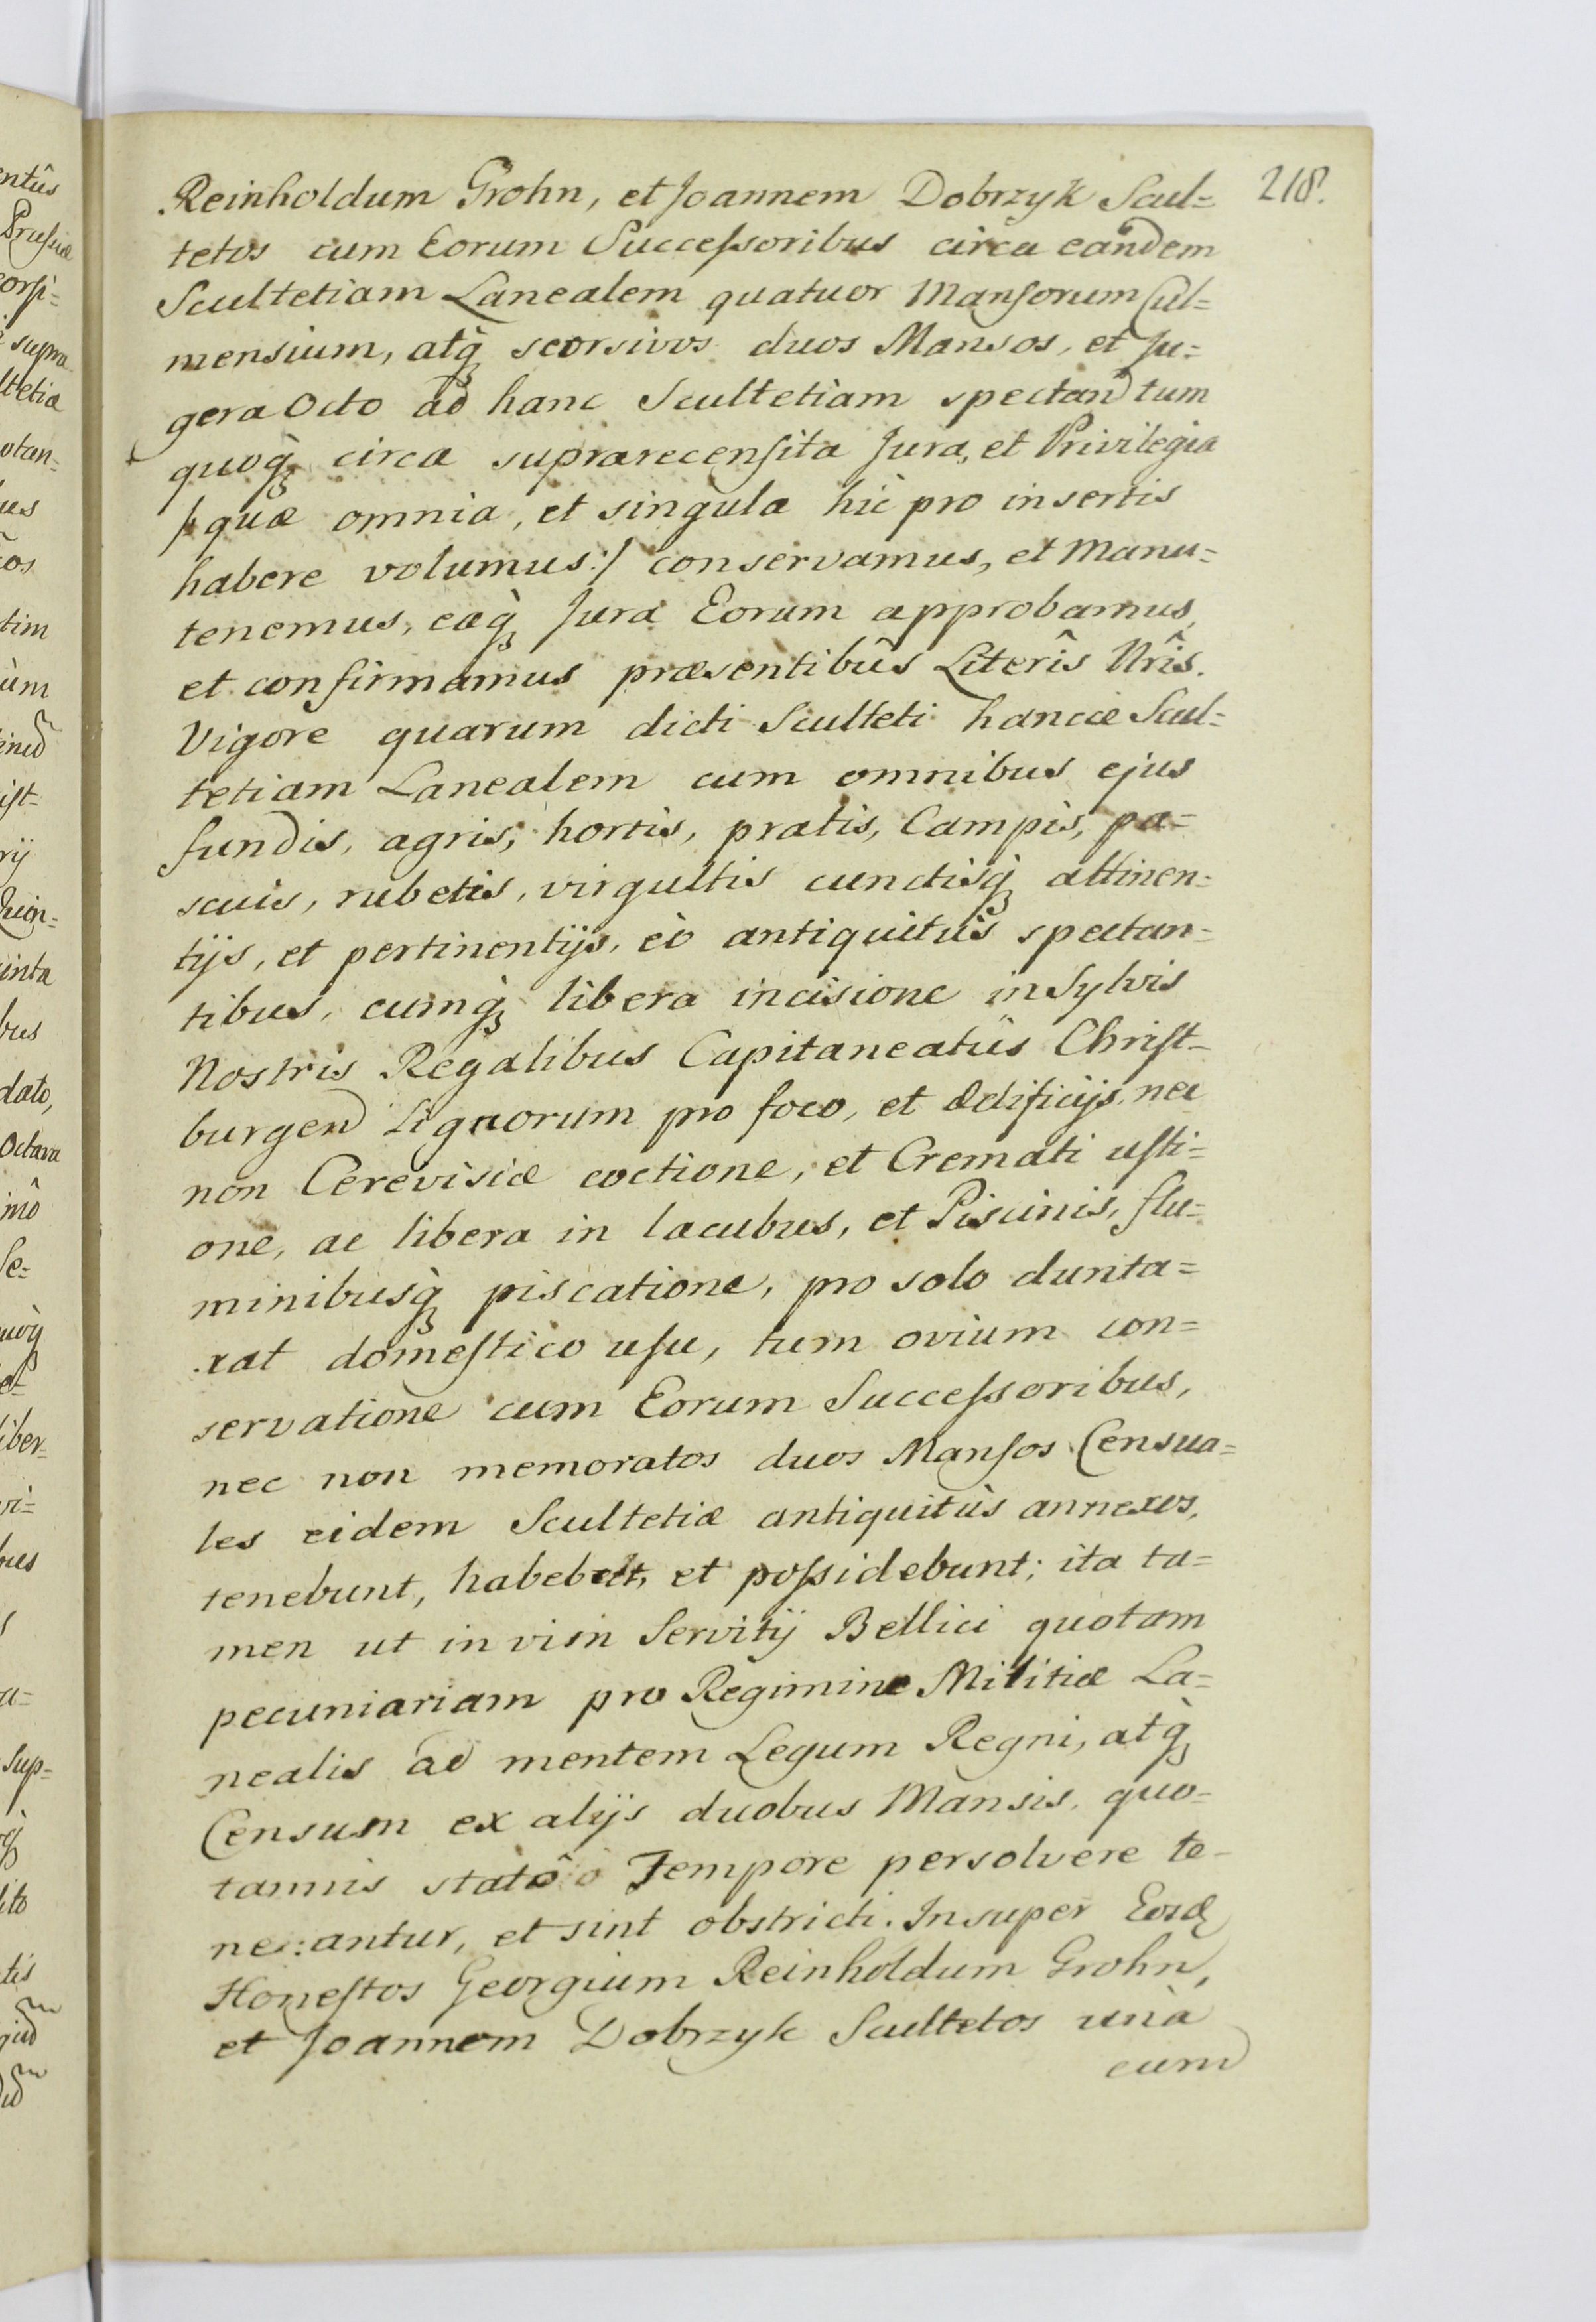 218.
Reinholdum Grohn, et Joannem Dobrzyk Scul=
tetos cum Eorum Successoribus circa eandem
Scultetiam Lanealem quatuor Mansorum Cul=
mensium, atq̀ seorsivos duos Mansos, et Ju=
gera Octo ad hanc Scultetiam spectan tum
quoq̀ circa suprarecensita Jura, et Privilegia
/: quæ omnia, et singula hic pro insertis
habere volumus :/ conservamus, et Manu=
tenemus, eaq̀ Jura Eorum approbamus,
et confirmamus præsentibûs Literîs Nrîs.
Vigore quarum dicti Sculteti hancce Scul=
tetiam Lanealem cum omnibus ejus
fundis, agris, hortis, pratis, Campis, pa=
scuis, rubetis, virgultis cunctisq̀ attinen=
tijs, et pertinentijs, eò antiquitùs spectan=
tibus, cumq̀ libera incisione in Sylvis
Nostris Regalibus Capitaneatûs Christ=
burgen Lignorum pro foco, et ædificijs, nec
non Cerevisiæ coctione, et Cremati usti=
one, ac libera in lacubus, et Piscinis, flu=
minibusq̀ piscatione, pro solo dunta=
xat domestico usu, tum ovium con=
servatione cum Eorum Successoribus,
nec non memoratos duos Mansos Censua=
les eidem Scultetiæ antiquitùs annexos,
tenebunt, habebunt, et possidebunt; ita ta=
men ut in vim Servitij Bellici quotam
pecuniariam pro Regimine Militiæ La=
nealis ad mentem Legum Regni, atq̀
Censum ex alijs duobus Mansis, quo=
tannis statô Tempore persolvere te=
neantur, et sint obstricti. Insuper Eosd
Honestos Georgium Reinholdum Grohn,
et Joannem Dobrzyk Scultetos unà
cum
entûs
Prussiæ
corpi=
supra
ltetiæ
dato,
Octava
Sup=